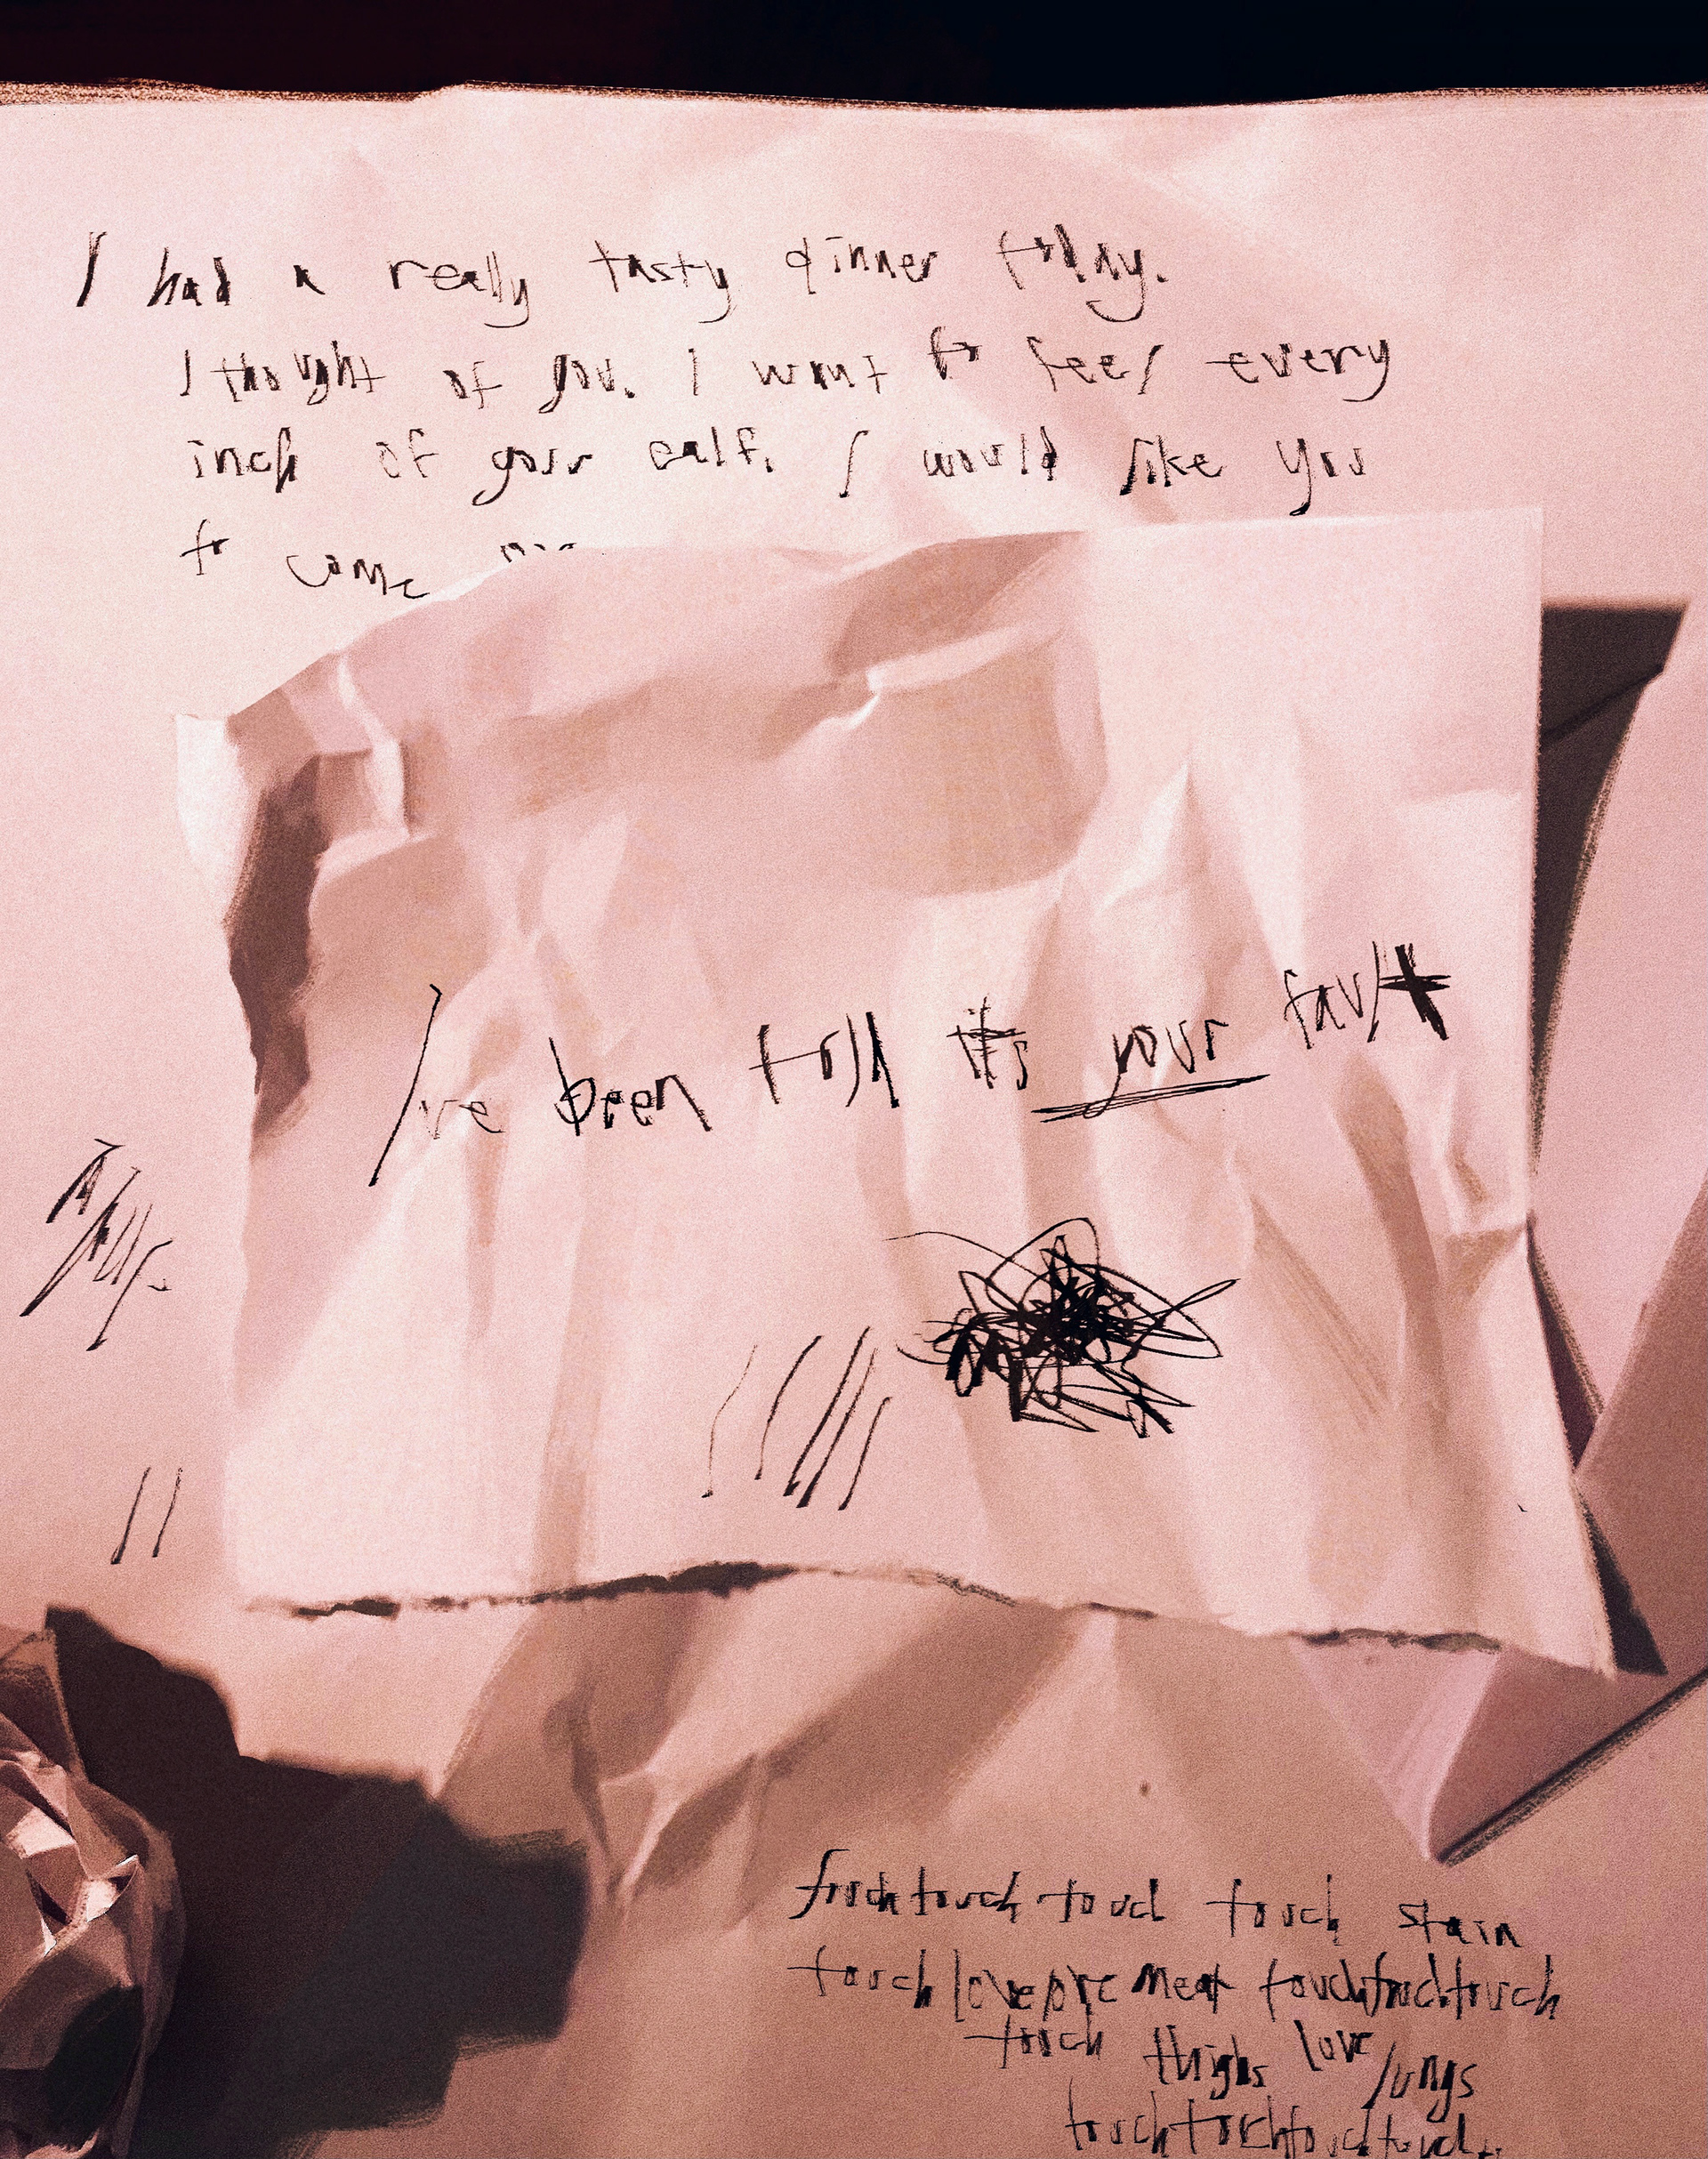 I had a really tasty dinner today.
I thought of you. I want to feel every
inch of your calf. I would like you
to come
I've been told it's your fault
touchtouch touch touch stain
touch love meat touchtouchtouch
touch thighs love lungs
touchtouchtouchtouch